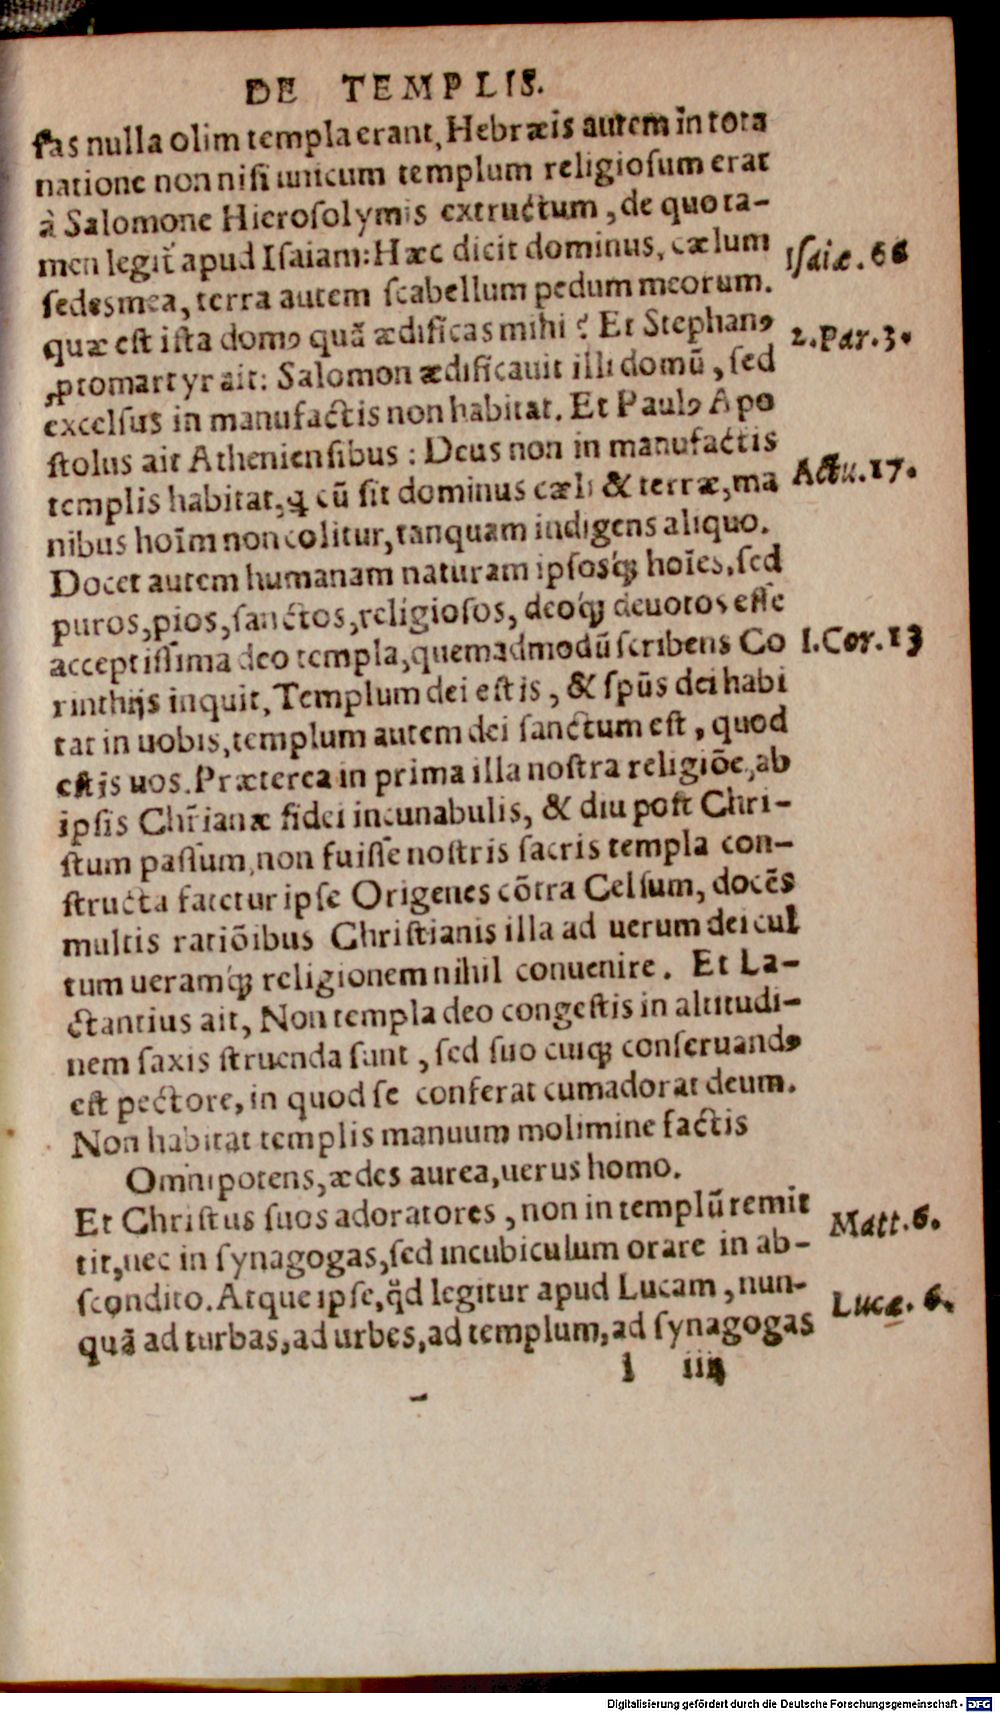 DE TEMPLIS.
sas nulla olim templa erant, Hebræis autem in tota
natione non nisi unicum templum religiosum erat
à Salomone Hierosolymis extructum, de quo ta-
men legit᷑ apud Isaiam: Hæc dicit dominus, cælum
Isaiæ. 66
sedes mea, terra autem scabellum pedum meorum.
quæ est ista domꝰ quã ædificas mihi? Et Stephanꝰ
2. Par. 3.
ꝓtomartyr ait: Salomon ædificauit illi domũ, sed
excelsus in manufactis non habitat. Et Paulꝰ Apo
stolus ait Atheniensibus: Deus non in manufactis
templis habitat, ꝗ cũ sit dominus cæli & terræ, ma
Actu. 17.
nibus hoĩm non colitur, tanquam indigens aliquo.
Docet autem humanam naturam ipsosq́ꝫ hoĩes, sed
puros, pios, sanctos, religiosos, deoq́ꝫ deuotos esse
acceptissima deo templa, quemadmodũ scribens Co
1. Cor. 13
rinthijs inquit, Templum dei estis, & spũs dei habi
tat in uobis, templum autem dei sanctum est, quod
estis uos. Præterea in prima illa nostra religiõe, ab
ipsis Chr̃ianæ fidei incunabulis, & diu post Chri-
stum passum, non fuisse nostris sacris templa con-
structa fatetur ipse Origenes cõtra Celsum, docẽs
multis ratiõibus Christianis illa ad uerum dei cul
tum ueramq́ꝫ religionem nihil conuenire. Et La-
ctantius ait, Non templa deo congestis in altitudi-
nem saxis struenda sunt, sed suo cuiqꝫ conseruandꝰ
est pectore, in quod se conferat cum adorat deum.
Non habitat templis manuum molimine factis
Omnipotens, ædes aurea, uerus homo.
Et Christus suos adoratores, non in templũ remit
Matt. 6.
tit, nec in synagogas, sed in cubiculum orare in ab-
scondito. Atque ipse, qd̃ legitur apud Lucam, nun-
Lucæ. 6.
quã ad turbas, ad urbes, ad templum, ad synagogas
l iiij
Digitalisierung gefördert durch die Deutsche Forschungsgemeinschaft - DFG